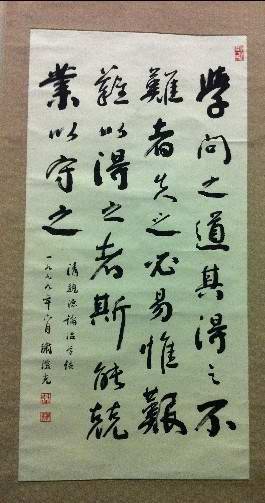 學問之道其得之不
難者失之必易惟艱
難以得之者斯能兢
業以守之
清魏源論治學語
一九九九年六月